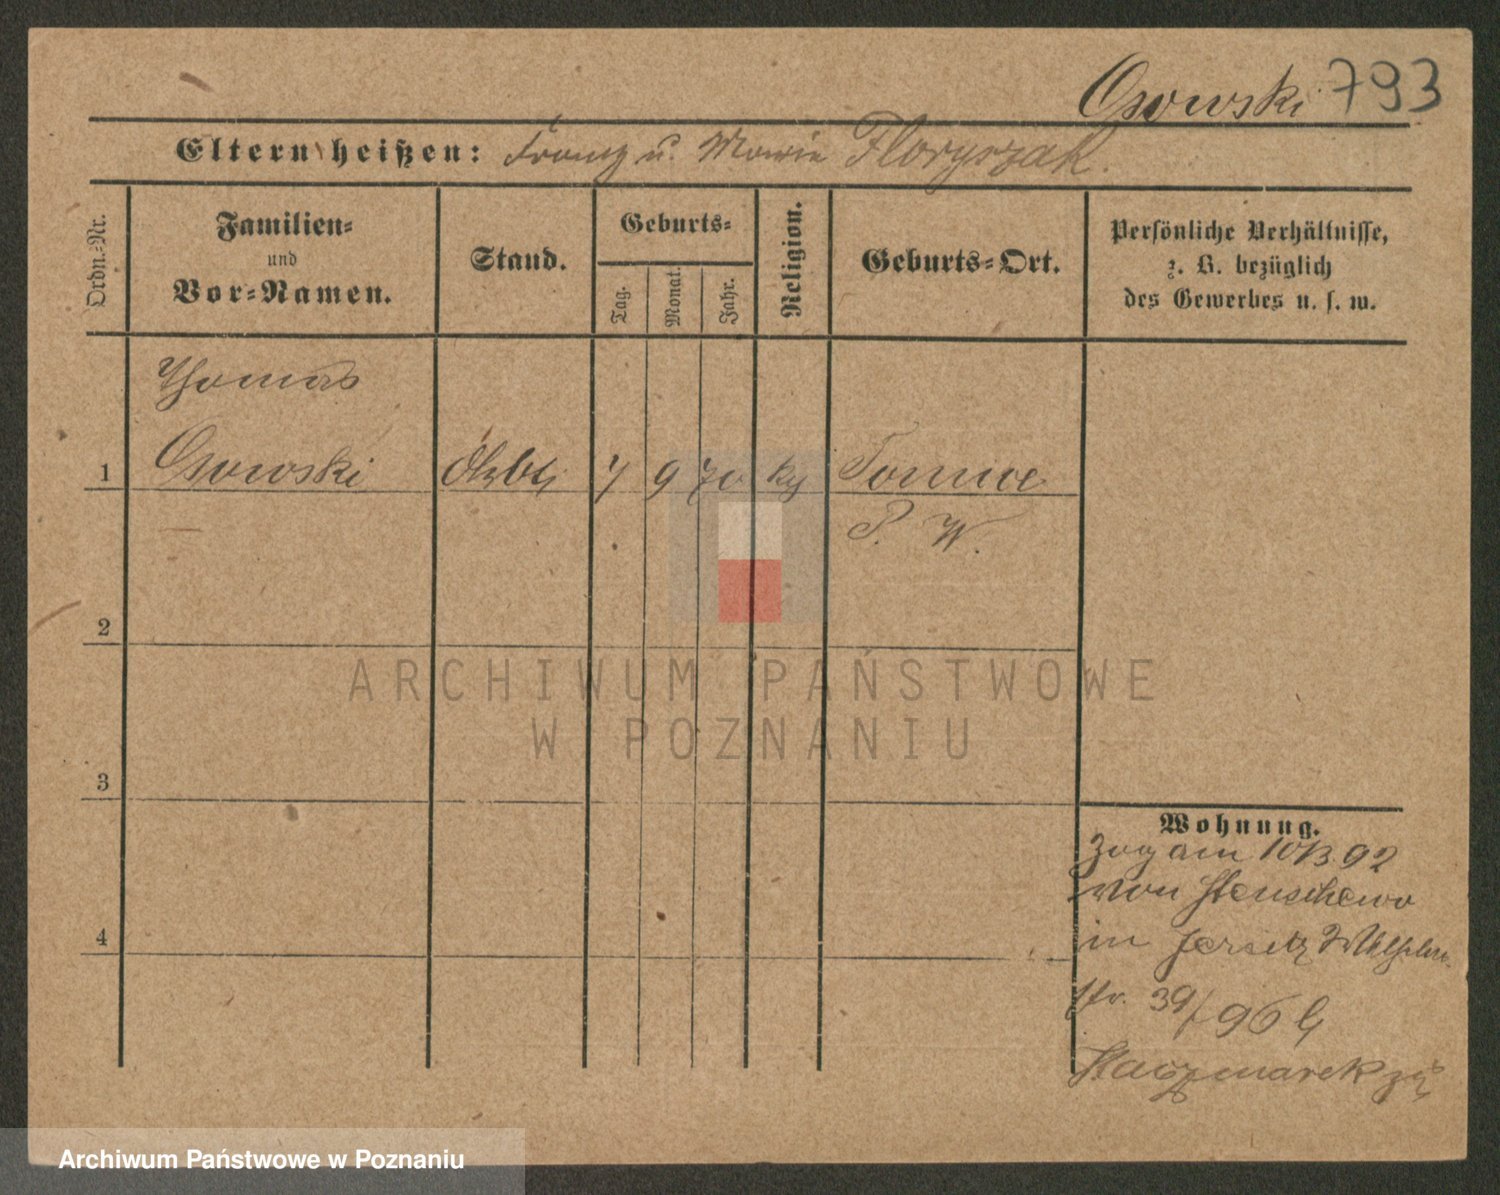 Osowski 793
Eltern heißen: Franz u. Marie Floryszak.
Ordn.-Nr.
Familien-
und
Vor-Namen.
Stand.
Geburts-
Tag.
Monat.
Jahr.
Religion.
Geburts-Ort.
Persönliche Verhältnisse,
z. B. bezüglich
des Gewerbes u. s. w.
Thomas
1 Osowski 7 9 70
P. W.
2
3
4
Wohnung.
Zug am 10/3 92
von Stenschewo
in Jersitz Wilhelm
str. 39/
Kaczmarek
ARCHIWUM PAŃSTWOWE
W POZNANIU
Archiwum Państwowe w Poznaniu